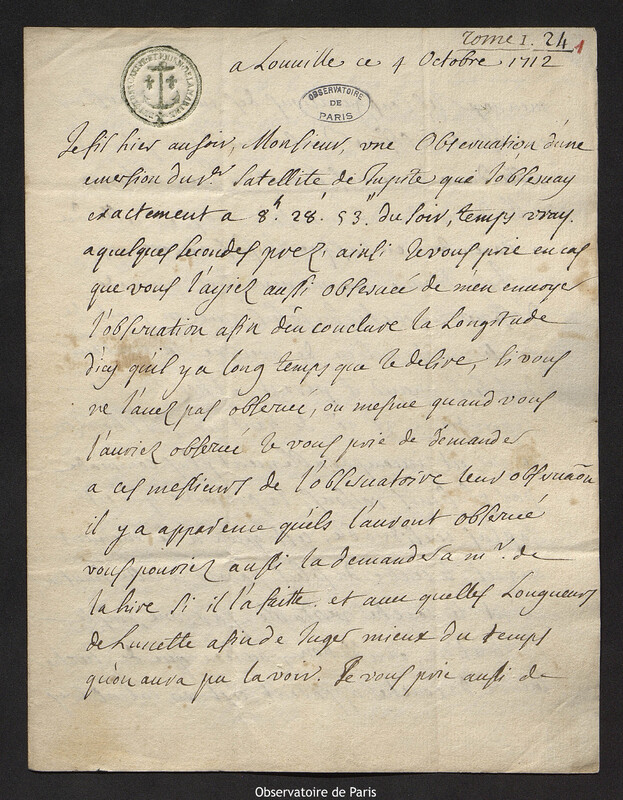 Tome I. 24 1
a Louville ce 4 Octobre 1712
OBSERVATOIRE
DE
PARIS
Je fis hier au soir, Monsieur, vne Observation d'une
emersion du 1er Satellite de Jupiter que j'observay
exactement a 8h. 28' 53" du soir, temps vray
a quelques secondes prez, ainsi Je vous prie en cas
que vous l'ayiez aussi observée de m'en envoyer
l'observation afin d'en conclure la Longitude
d'icy qu'il y a long temps que Je desire, si vous
ne l'avez pas observée, ou mesme quand vous
l'auriez observé Je vous prie de demander
a ces messieurs de l'observatoire leur observaõn
il y a apparence qu'ils l'auront observé
vous pouriez aussi la demander a mr. de
la hire si il l'a faitte. et avec quelles Longueurs
de Lunette afin de Juger mieux du temps
qu'on aura pu la voir. Je vous prie aussi de
Observatoire de Paris